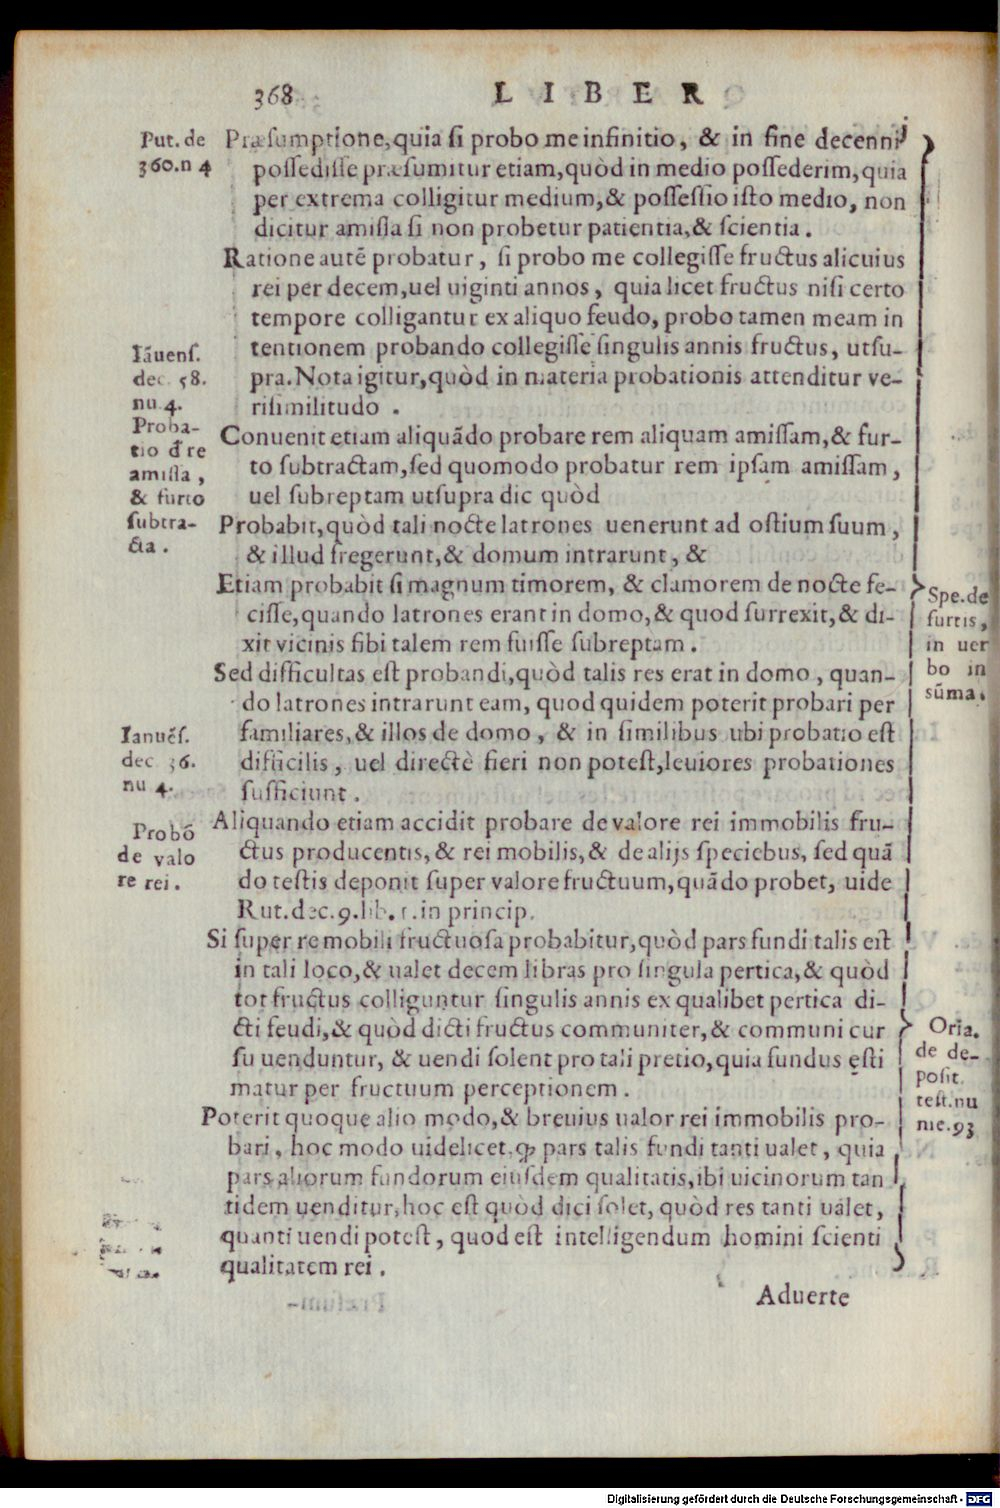 368 LIBER
Put. de
360.n 4
Præsumptione,quia si probo me infinitio, & in fine decennij
possedisse præsumitur etiam,quòd in medio possederim,quia
per extrema colligitur medium,& possessio isto medio, non
dicitur amissa si non probetur patientia,& scientia.
Ratione autē probatur, si probo me collegisse fructus alicuius
rei per decem,uel uiginti annos, quia licet fructus nisi certo
tempore colligantur ex aliquo feudo, probo tamen meam in
tentionem probando collegisse singulis annis fructus, utsu-
pra. Nota igitur,quòd in materia probationis attenditur ve-
risimilitudo.
Iāuens.
dec. 58.
nu 4.
Proba-
tio đ re
amissa,
& furto
subtra-
cta.
Conuenit etiam aliquādo probare rem aliquam amissam,& fur-
to subtractam,sed quomodo probatur rem ipsam amissam,
uel subreptam utsupra dic quòd
Probabit,quòd tali nocte latrones uenerunt ad ostium suum,
& illud fregerunt,& domum intrarunt, &
Etiam probabit si magnum timorem, & clamorem de nocte fe-
cisse,quando latrones erant in domo,& quod surrexit,& di-
xit vicinis sibi talem rem fuisse subreptam.
Spe.de
furtis,
in uer
bo in
sūma.
Sed difficultas est probandi,quòd talis res erat in domo, quan-
do latrones intrarunt eam, quod quidem poterit probari per
familiares,& illos de domo, & in similibus ubi probatio est
difficilis, uel directè fieri non potest,leuiores probationes
sufficiunt.
Ianuēs.
dec 36.
nu 4.
Probō
de valo
re rei.
Aliquando etiam accidit probare de valore rei immobilis fru-
ctus producentis,& rei mobilis,& de alijs speciebus, sed quā
do testis deponit super valore fructuum,quādo probet, uide
Rut.dec.9.lib. 1.in princip.
Si super re mobili fructuosa probabitur,quòd pars fundi talis est
in tali loco,& ualet decem libras pro singula pertica,& quòd
tot fructus colliguntur singulis annis ex qualibet pertica di-
cti feudi,& quòd dicti fructus communiter,& communi cur
su uenduntur, & uendi solent pro tali pretio,quia fundus ęsti
matur per fructuum perceptionem.
Oria.
de de-
posit.
test.nu
me.93
Poterit quoque alio modo,& breuius ualor rei immobilis pro-
bari, hoc modo uidelicet.ꝙ pars talis fundi tanti ualet, quia
pars aliorum fundorum eiusdem qualitatis,ibi uicinorum tan
tidem uenditur,hoc est quòd dici solet, quòd res tanti ualet,
quanti uendi potest, quod est intelligendum homini scienti
qualitatem rei.
Aduerte
Digitalisierung gefördert durch die Deutsche Forschungsgemeinschaft - DFG